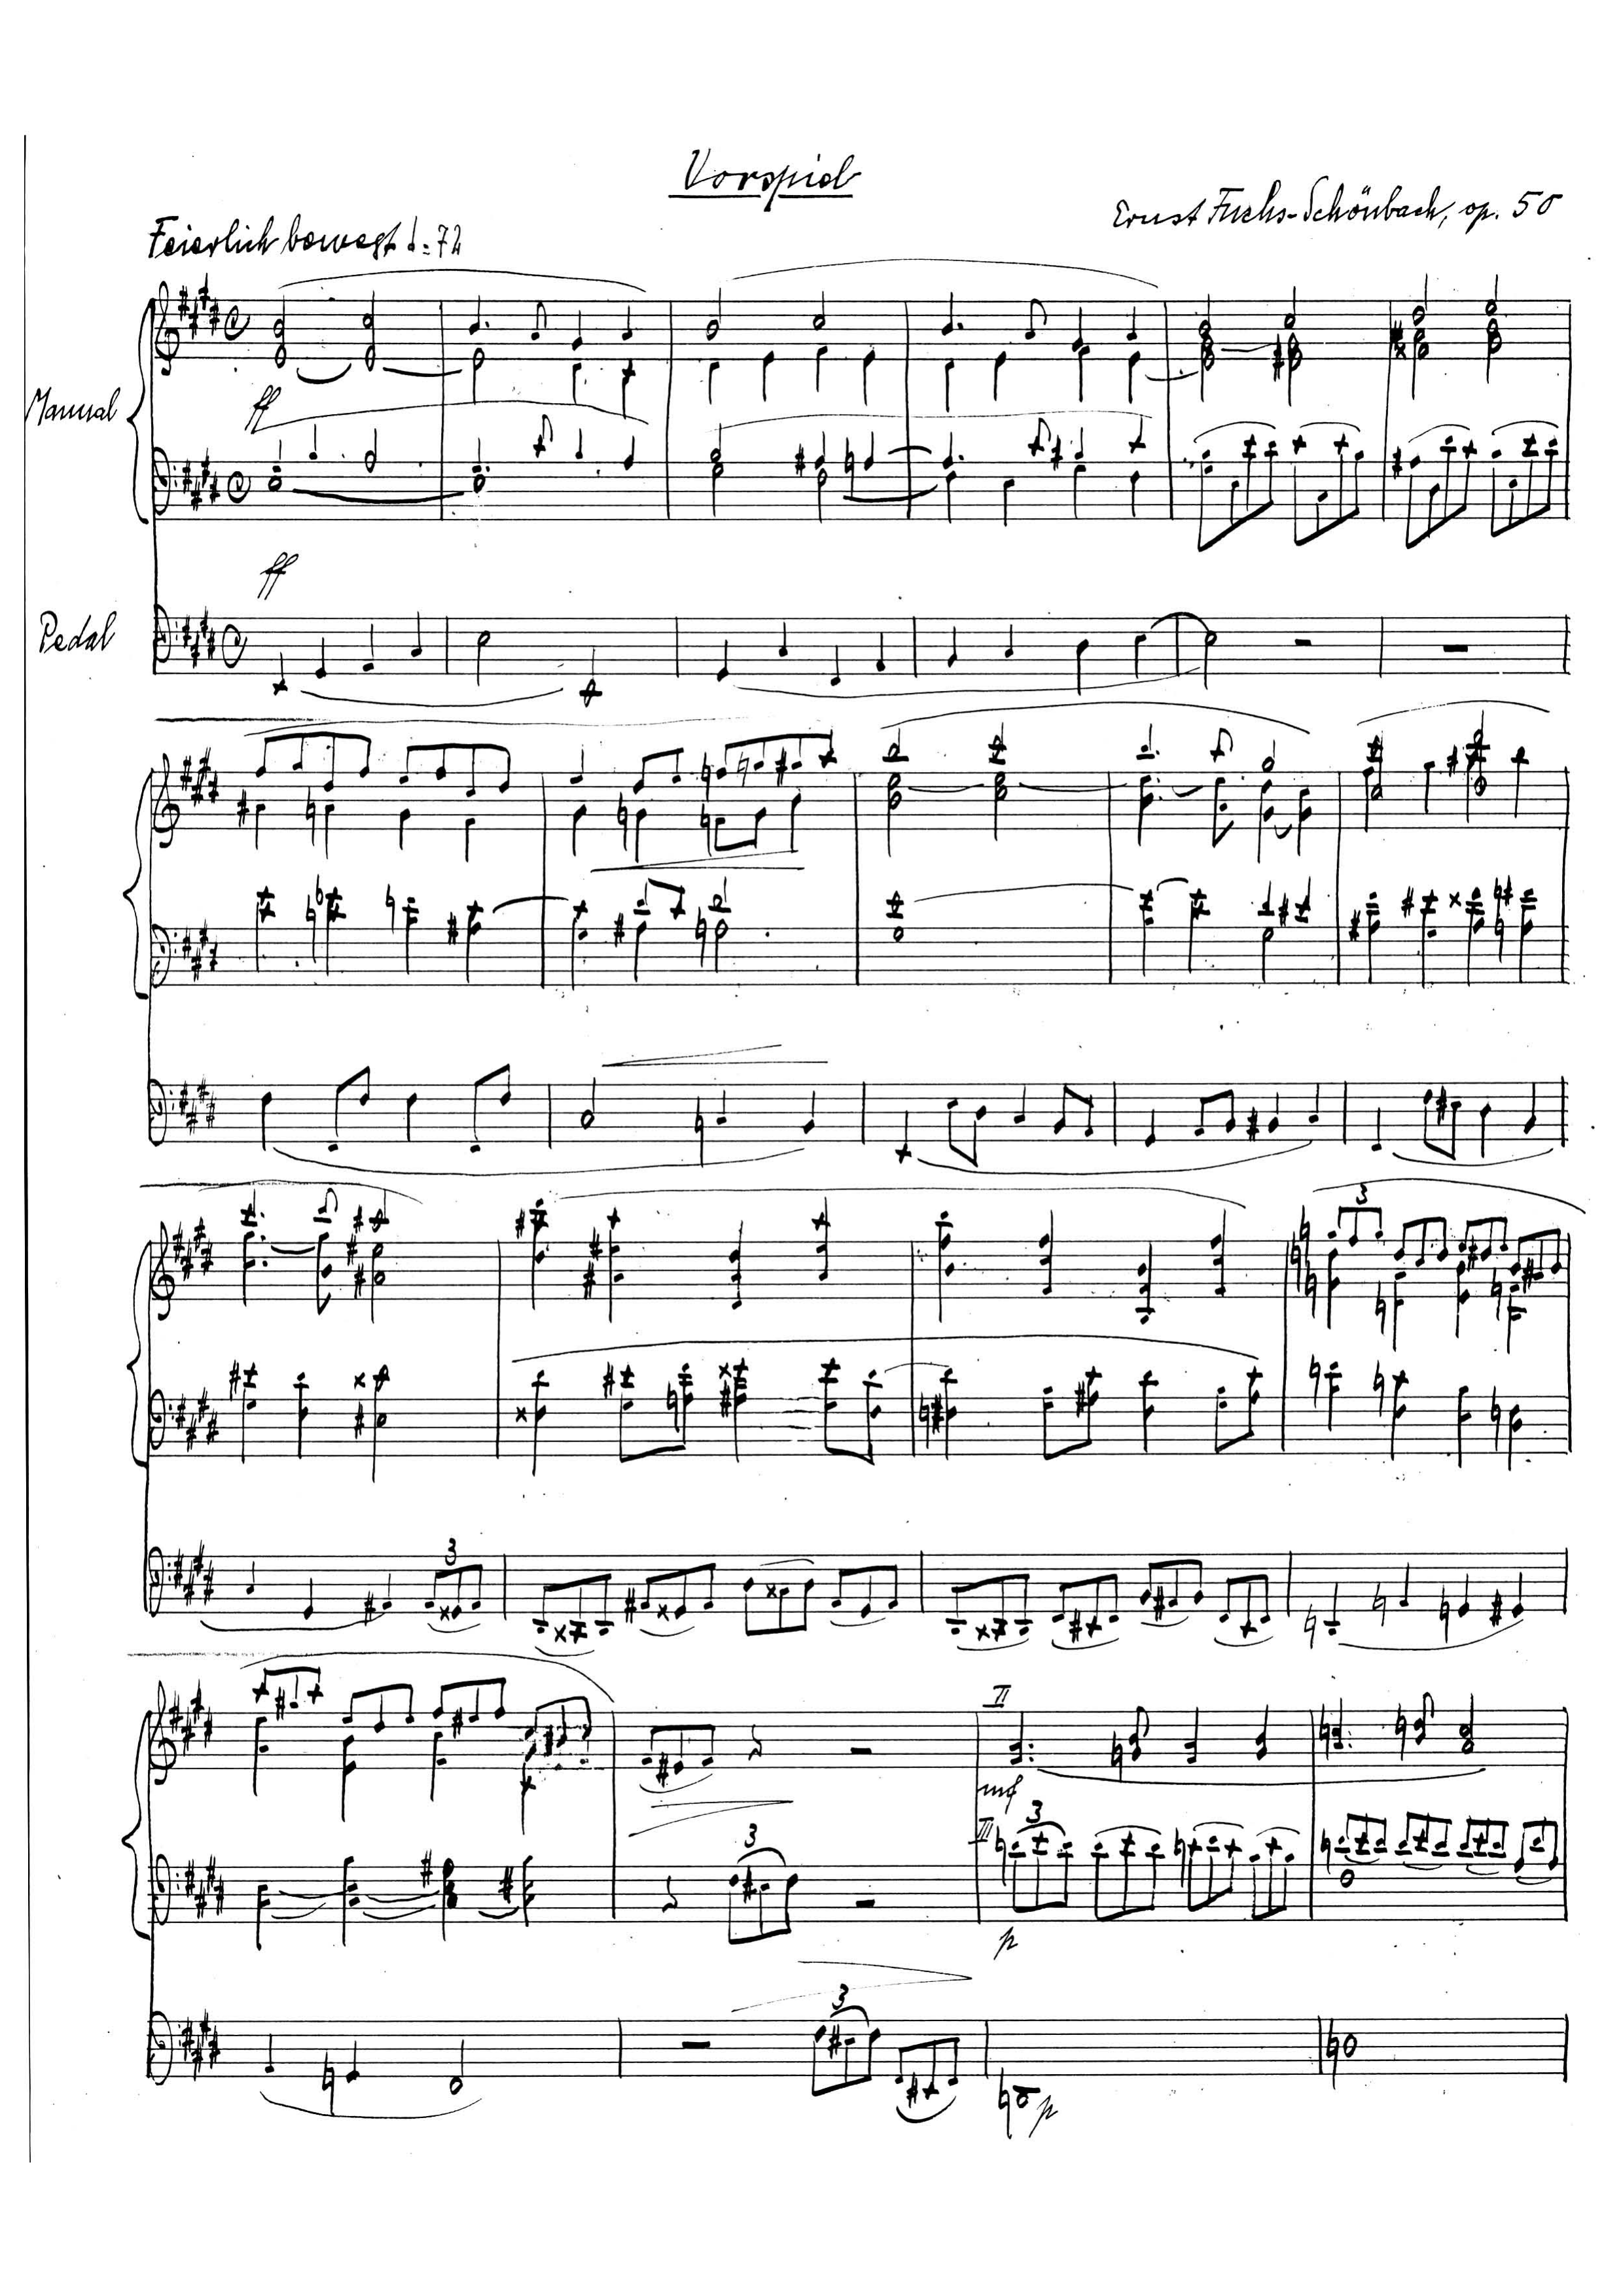 Vorspiel
Ernst Fuchs-Schönbach, op. 50
Feierlich bewegt 𝅗𝅥=72
Manual
ff
ff
Pedal
3
3
3
II
mf
III
3
3
p
3
p